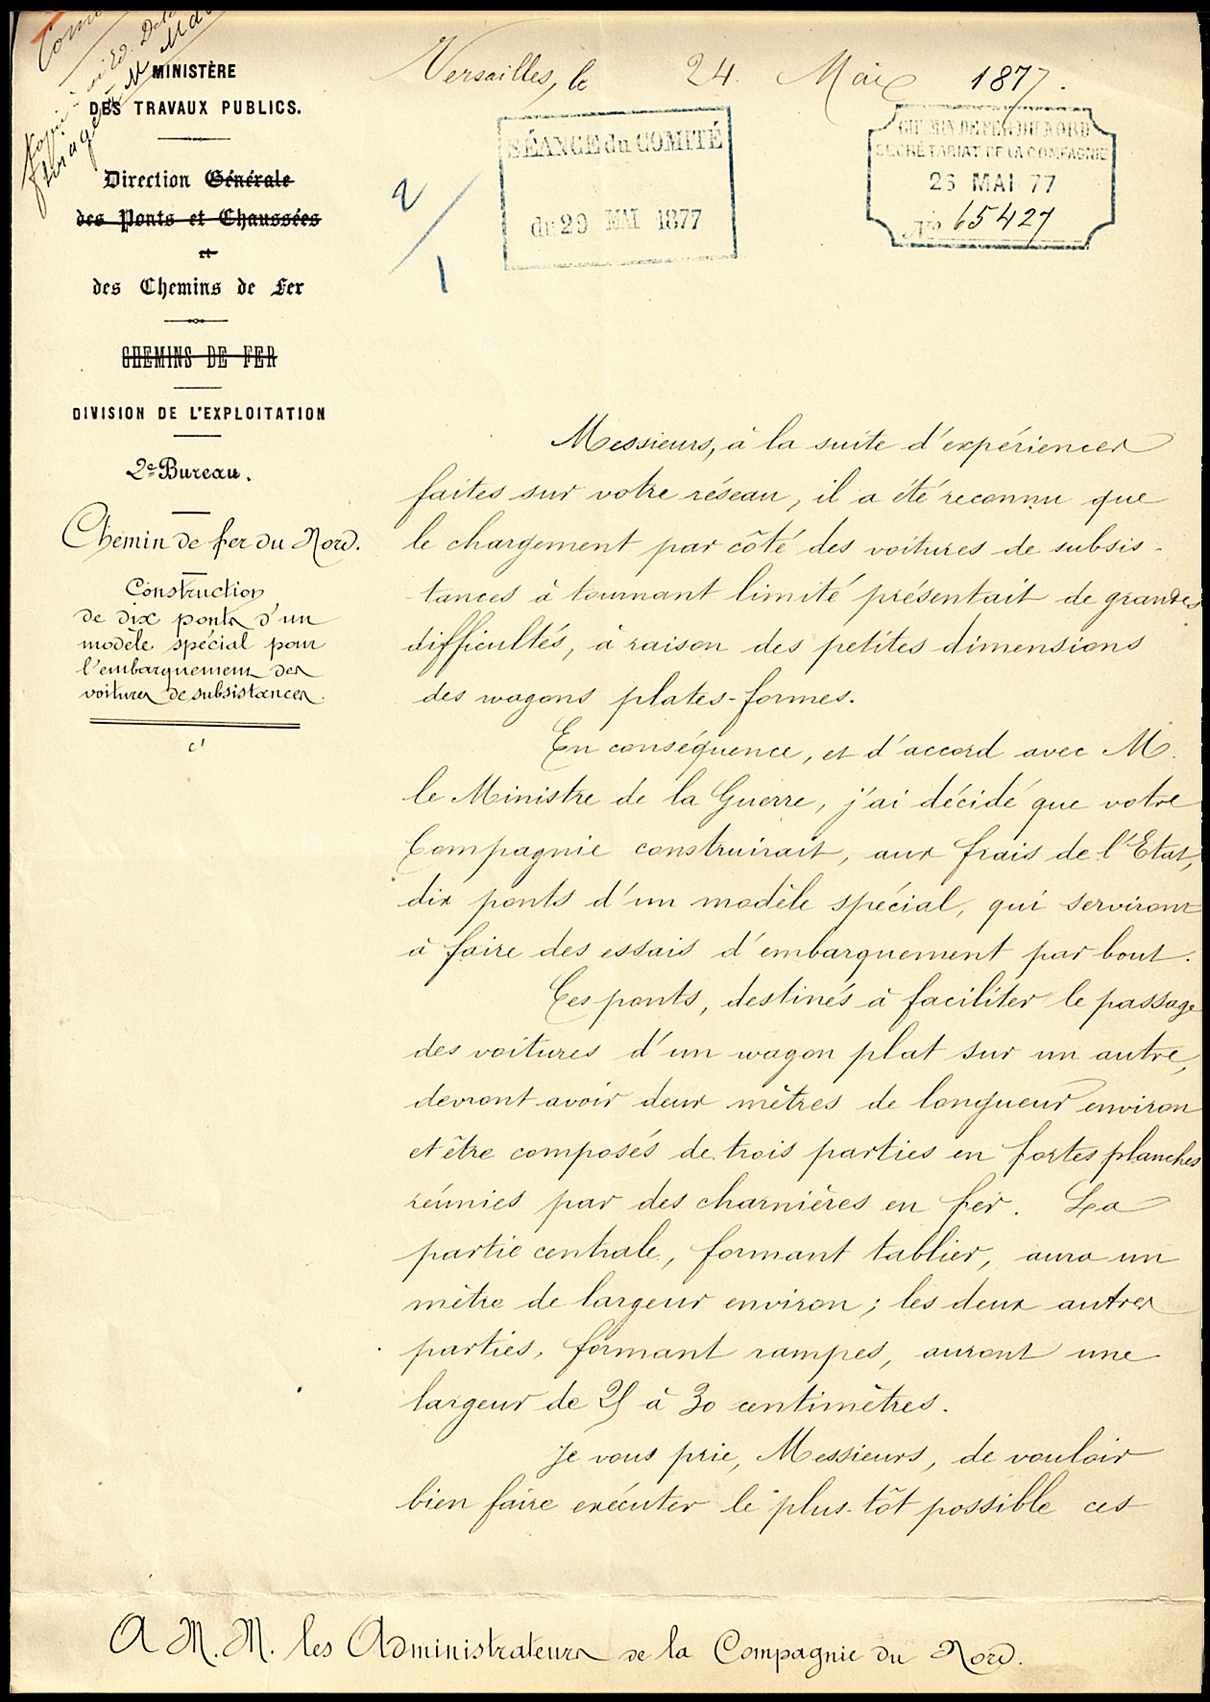 MINISTÈRE
DES TRAVAUX PUBLICS.
Direction Générale
des Ponts et Chaussées
et
des Chemins de Fer
CHEMINS DE FER
DIVISION DE L'EXPLOITATION
2e Bureau.
Chemin de fer du Nord.
Construction
de dix ponts d'un
modèle spécial pour
l'embarquement des
voitures de subsistances.
Versailles, le 24 Mai 1877.
SÉANCE du COMITÉ
du 29 MAI 1877
CHEMIN DE FER DU NORD
SECRÉTARIAT DE LA COMPAGNIE
26 MAI 77
No 65427
2/1
Messieurs, à la suite d'expériences
faites sur votre réseau, il a été reconnu que
le chargement par côté des voitures de subsis-
tances à tournant limité présentait de grandes
difficultés, à raison des petites dimensions
des wagons plates-formes.
En conséquence, et d'accord avec M.
le Ministre de la Guerre, j'ai décidé que votre
Compagnie construirait, aux frais de l'Etat,
dix ponts d'un modèle spécial, qui serviront
à faire des essais d'embarquement par bout.
Ces ponts, destinés à faciliter le passage
des voitures d'un wagon plat sur un autre,
devront avoir deux mètres de longueur environ
et être composés de trois parties en fortes planches
réunies par des charnières en fer. La
partie centrale, formant tablier, aura un
mètre de largeur environ; les deux autres
parties, formant rampes, auront une
largeur de 25 à 30 centimètres.
Je vous prie, Messieurs, de vouloir
bien faire exécuter le plus-tôt possible ces
A M.M. les Administrateurs de la Compagnie du Nord.